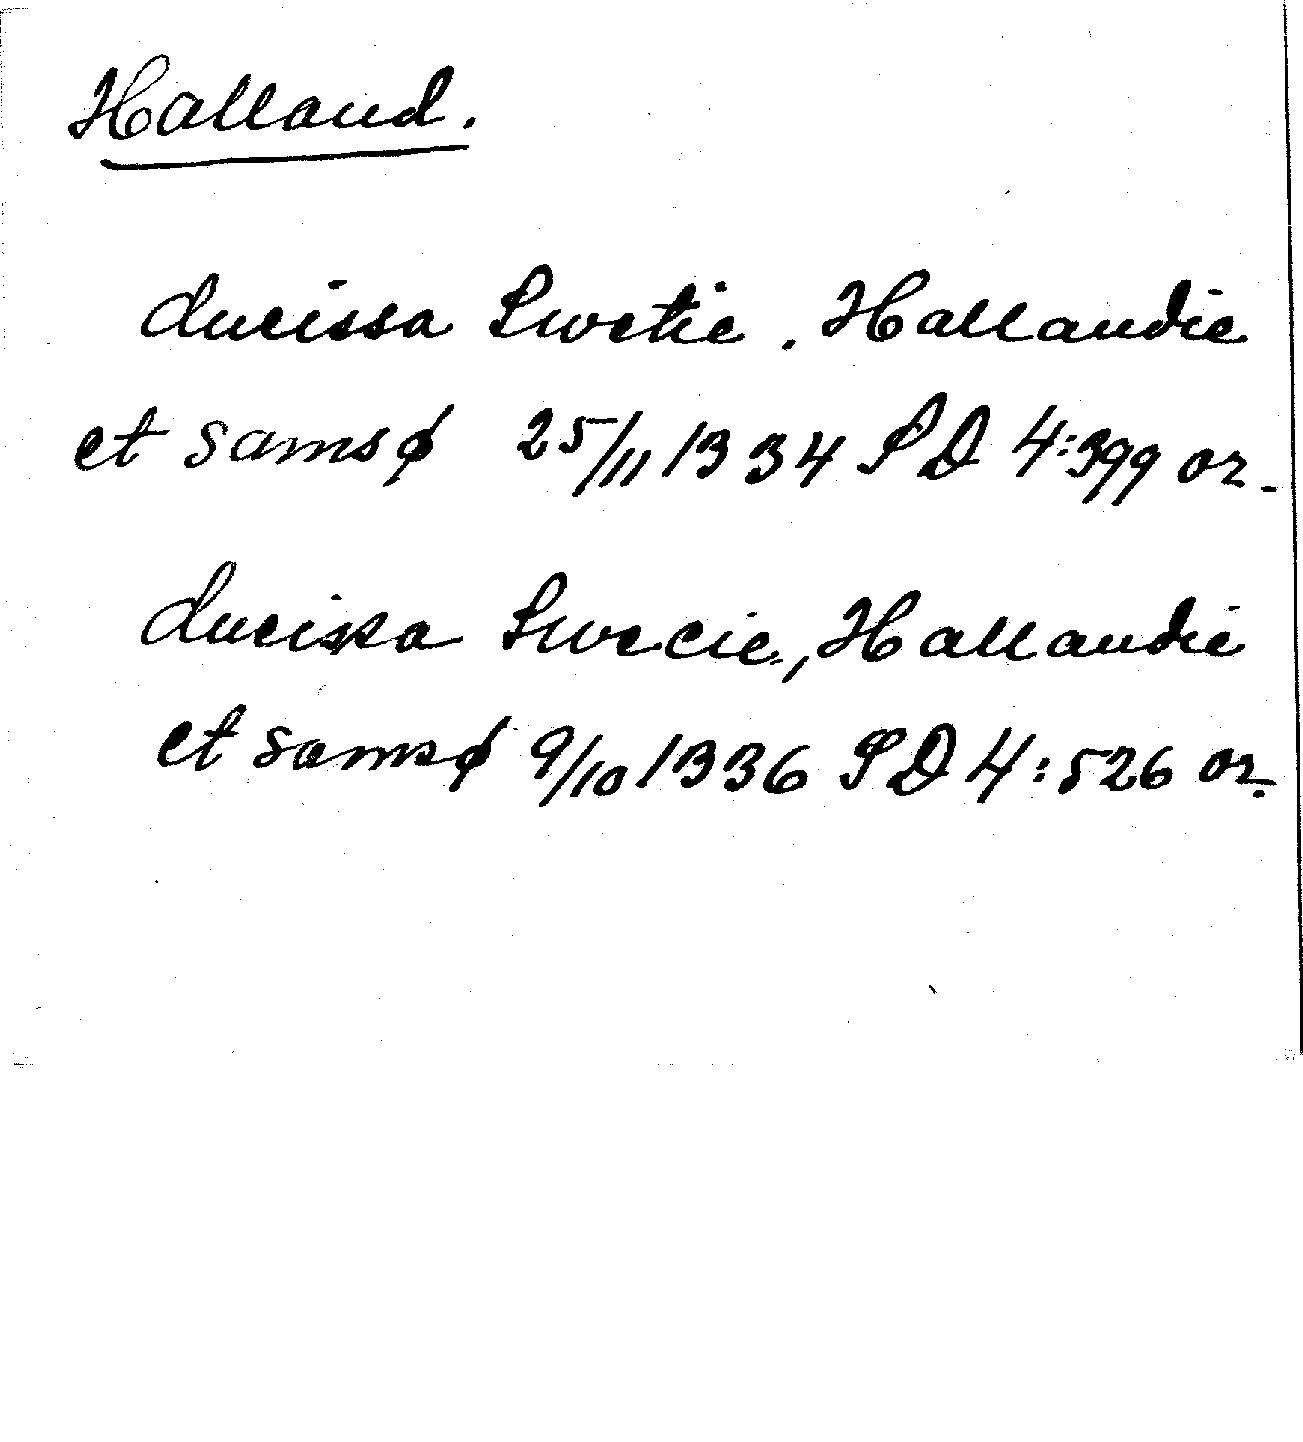 Halland.
ducissa Swetie. Hallandie
et samsø 25/11 1334 SD 4:399 or.
ducissa Swecie, Hallandie
et samsø 9/10 1336 SD 4:526 or.